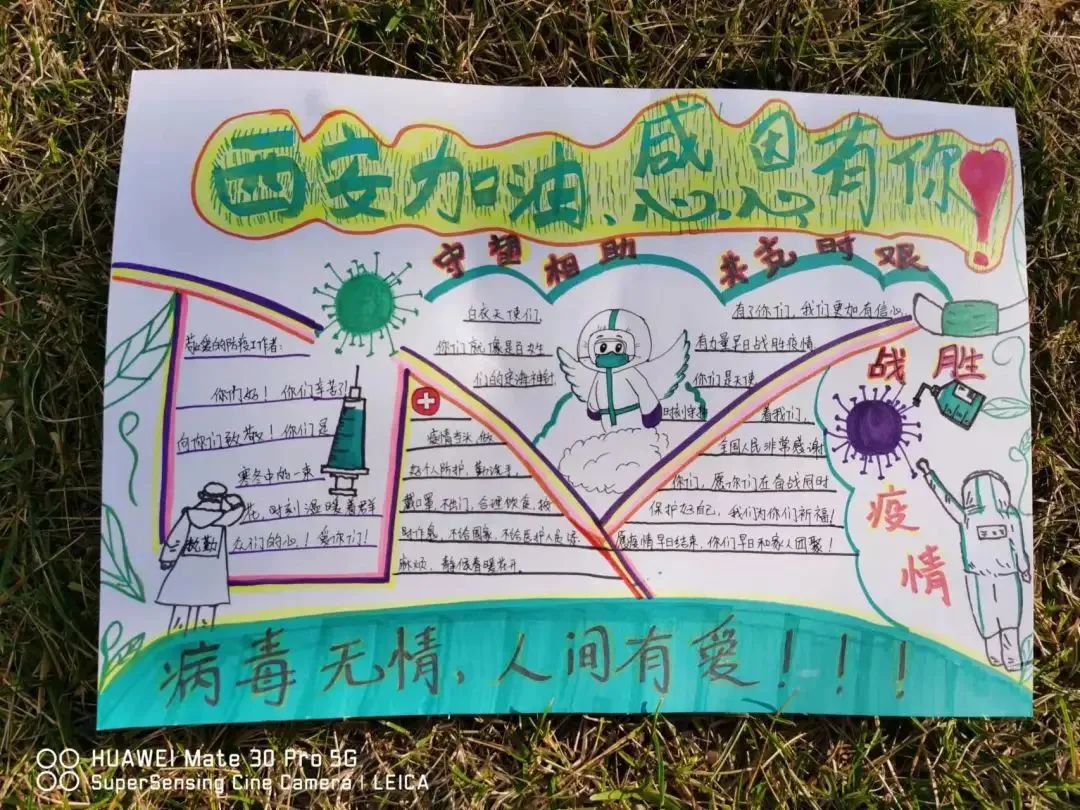 西安加油、感恩有你!
守望相助 共克时艰
敬爱的防疫工作者:
你们好!你们辛苦了!
向你们致敬!你们是
寒冬中的一束
花,时刻温暖着群
众们的心!爱你们!
执勤
白衣天使们
你们就像是百姓
们的定海神针
时刻守护
疫情当头,做
好个人防护,勤洗手,
戴口罩,不出门,合理饮食,按
时作息,不给国家,不给医护人员添
麻烦,静候春暖花开。
有了你们,我们更加有信心
有力量早日战胜疫情
你们是天使
着我们,
全国人民非常感谢
你们,愿你们在奋战同时
保护好自己,我们为你们祈福!
愿疫情早日结束,你们早日和家人团聚!
战胜
疫
情
病毒无情,人间有爱!!!
HUAWEI Mate 30 Pro 5G
SuperSensing Cine Camera | LEICA